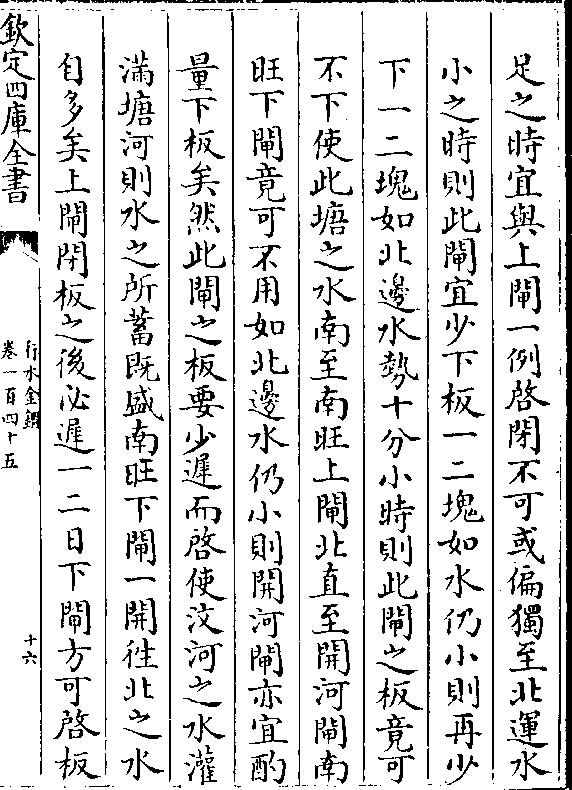 足之時宜與上閘一例啓閉不可或偏獨至北運水
小之時則此閘宜少下板一二塊如水仍小則再少
下一二塊如北邊水勢十分小時則此閘之板竟可
不下使此塘之水南至南旺上閘北直至開河閘南
旺下閘竟可不用如北邊水仍小則開河閘亦宜酌
量下板矣然此閘之板要少遲而啓使汶河之水灌
滿塘河則水之所蓄既盛南旺下閘一開徃北之水
自多矣上閘閉板之後必遲一二日下閘方可啓板
欽定四庫全書
行水金鑑
卷一百四十五
十六